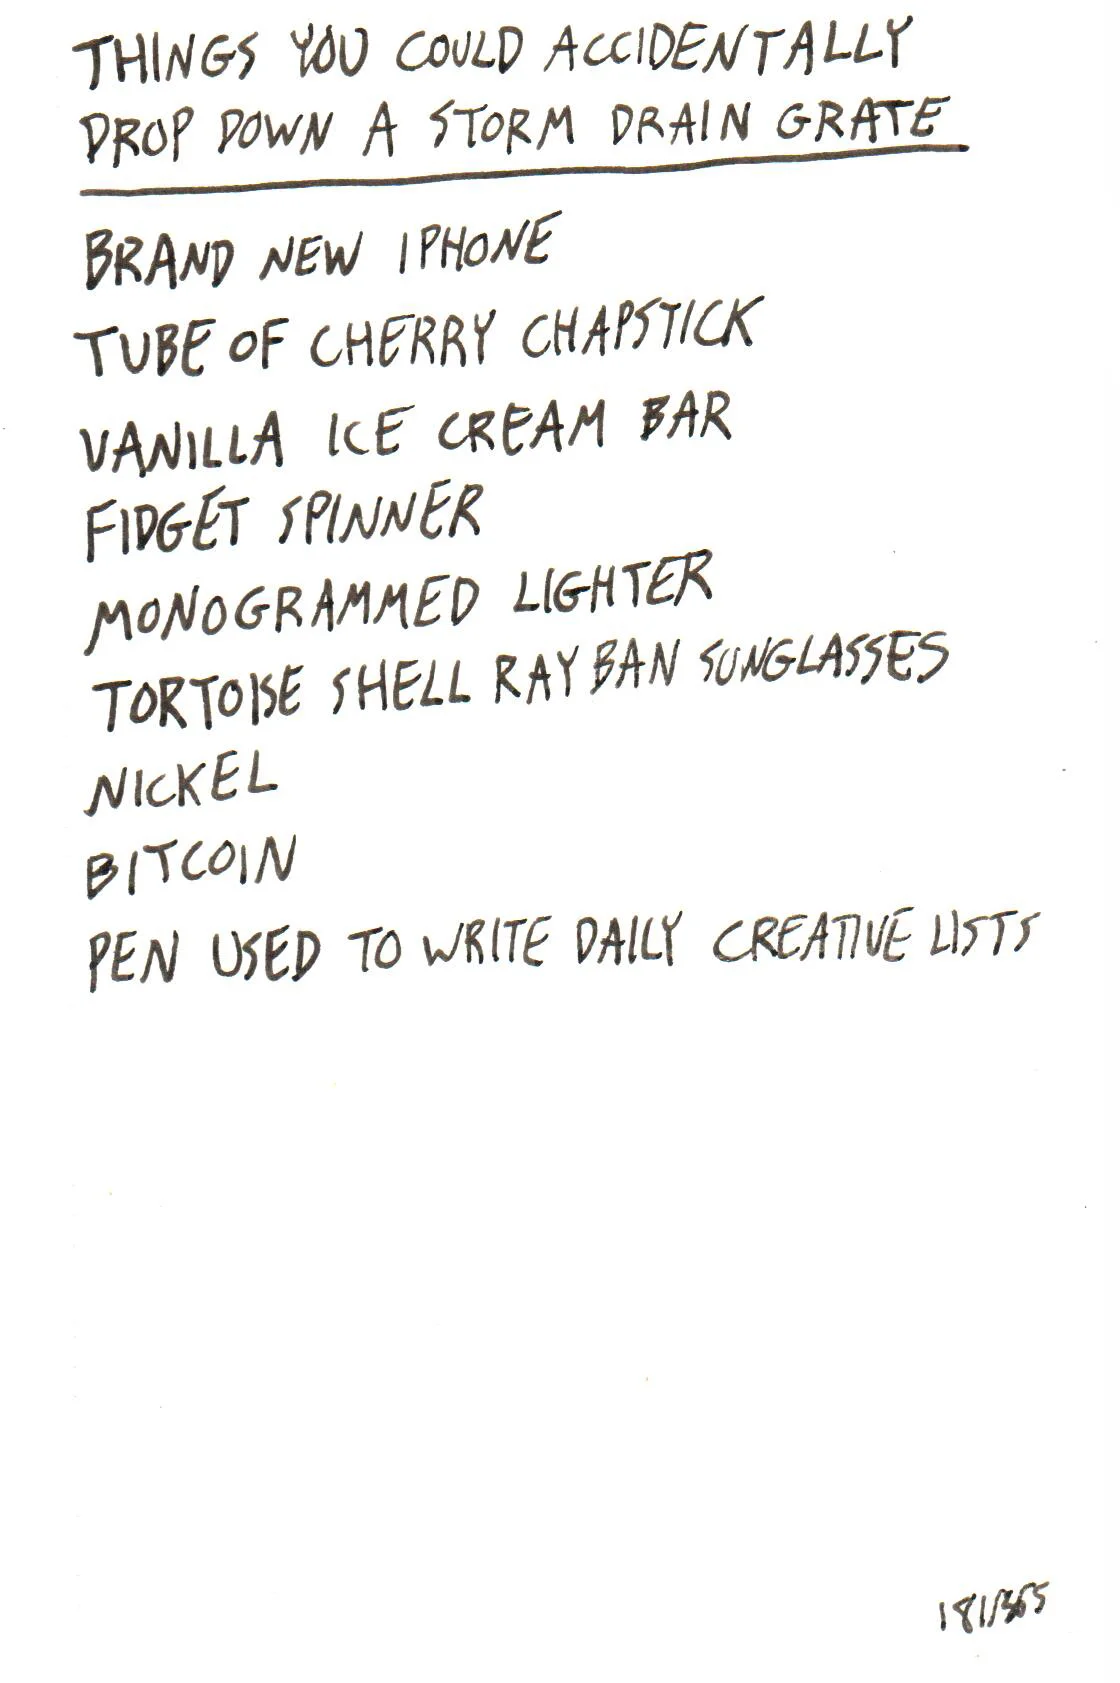 THINGS YOU COULD ACCIDENTALLY
DROP DOWN A STORM DRAIN GRATE
BRAND NEW IPHONE
TUBE OF CHERRY CHAPSTICK
VANILLA ICE CREAM BAR
FIDGET SPINNER
MONOGRAMMED LIGHTER
TORTOISE SHELL RAY BAN SUNGLASSES
NICKEL
BITCOIN
PEN USED TO WRITE DAILY CREATIVE LISTS
181/365